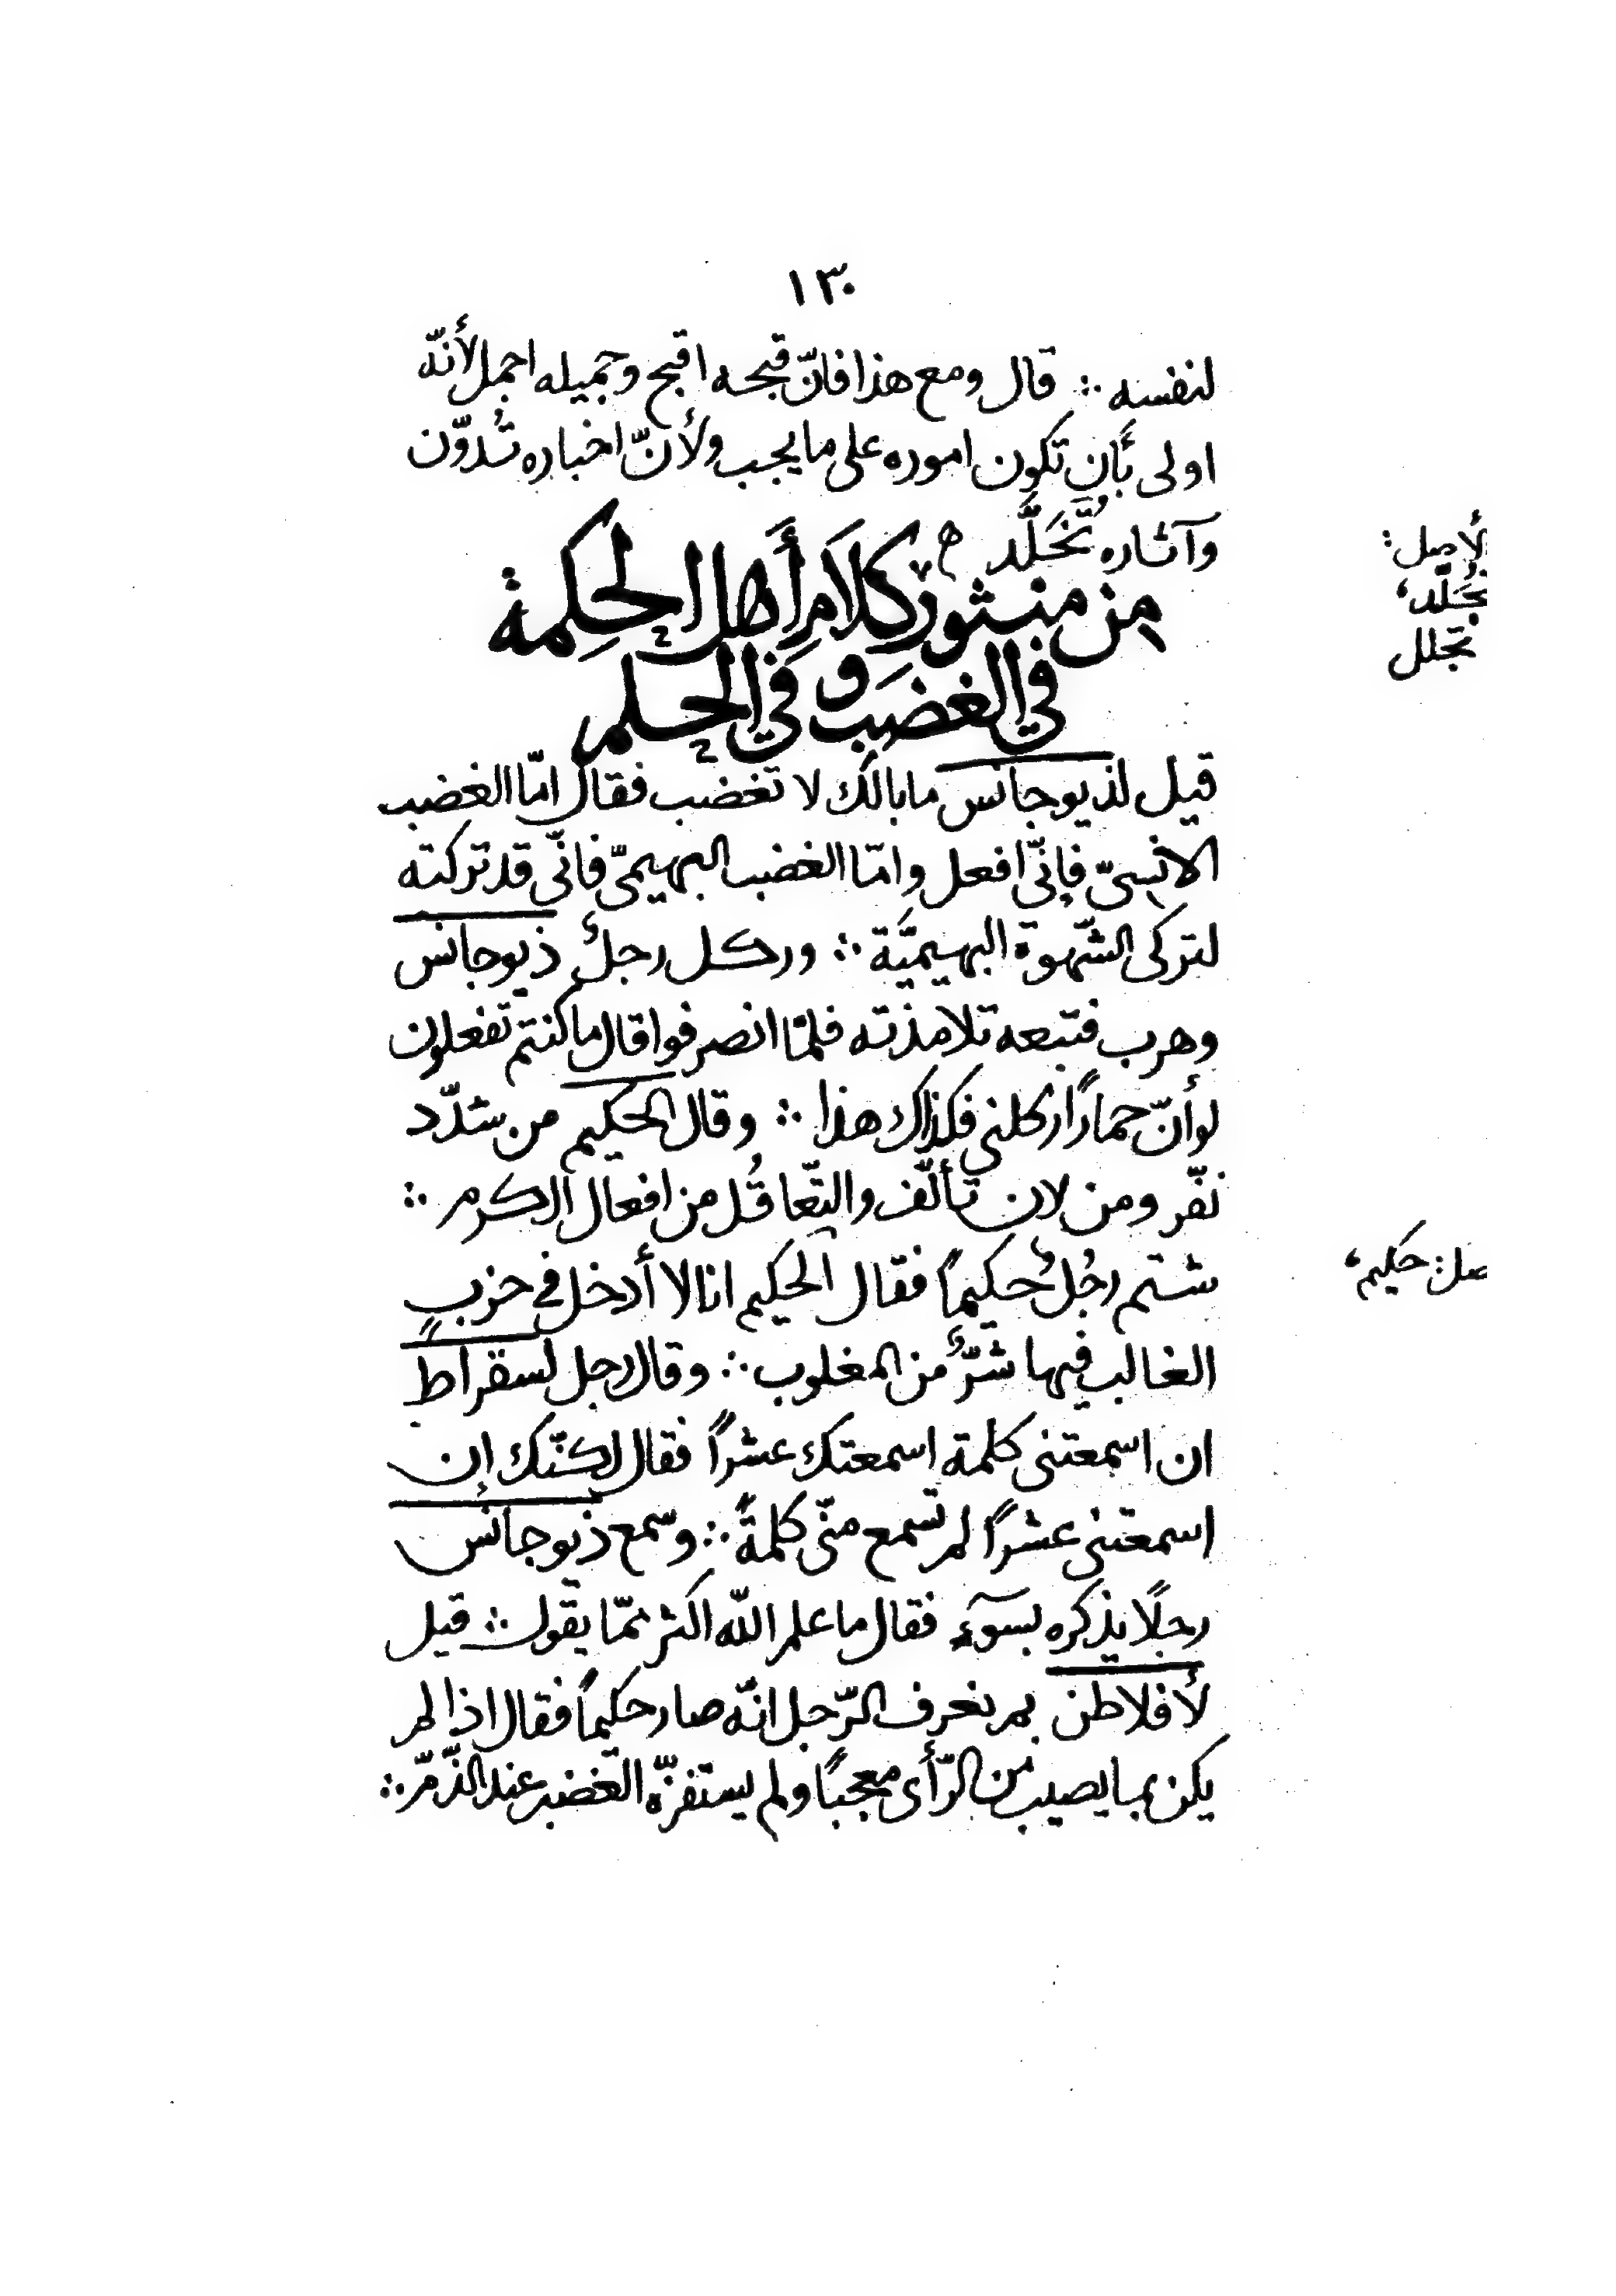 ١٣٠
لنفسه ∴ قال ومع هذا فانّ قبحه اقبح وجميله اجمل لأنّه
اولى بأن تكون اموره على ما يجب ولأنّ اخباره تُدوّن
وآثاره تُخَلَّد
من منثور كلام أهل الحكمة
في الغضب وفي الحلم
قيل لذيوجانس ما بالك لا تغضب فقال امّا الغضب
الانسىّ فإنّى افعل وامّا الغضب البهيمىّ فانّى قد تركته
لتركى الشّهوة البهيميّة ∴ وركل رجلٌ ذيوجانس
وهرب فتبعه تلامذته فلمّا انصرفوا قال ما كنتم تفعلون
لو أنّ حمارًا ركلنى فكذاك هذا ∴ وقال الحكيم من شدّد
نفّر ومن لان تألّف والتّعاقُل من افعال الكرم ∴
شتم رجُلٌ حكيمًا فقال الحكيم انا لا أدخل فى حربٍ
الغالب فيها شرٌّ من المغلوب ∴ وقال رجل لسقراط
ان اسمعتنى كلمة اسمعتك عشرًا فقال لكنّك إن
اسمعتنى عشرًا لم تسمع منّى كلمةً ∴ وسمع ذيوجانس
رجلًا يذكره بسوٓء فقال ما علم اللّه اكثر ممّا يقول ∴ قيل
لأفلاطن بم نعرف الرّجل انّه صار حكيمًا فقال اذا لم
يكن بما يصيب من الرّأى معجبًا ولم يستفزّه الغضب عند الذّمّ ∴
لأصل:
تُخلّد،
تجلل
صل: حكيم،